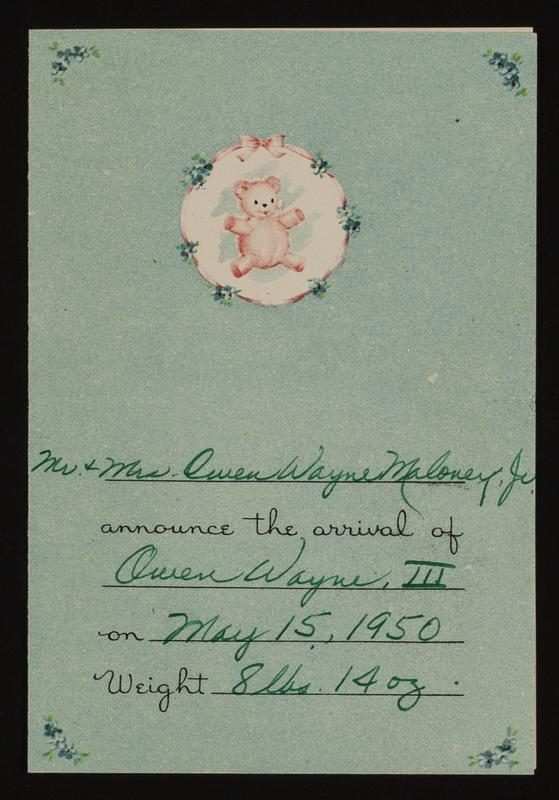 Mr. & Mrs. Owen Wayne Maloney, Jr.
announce the arrival of
Owen Wayne, III
on May 15, 1950
Weight 8 lbs. 14 oz.